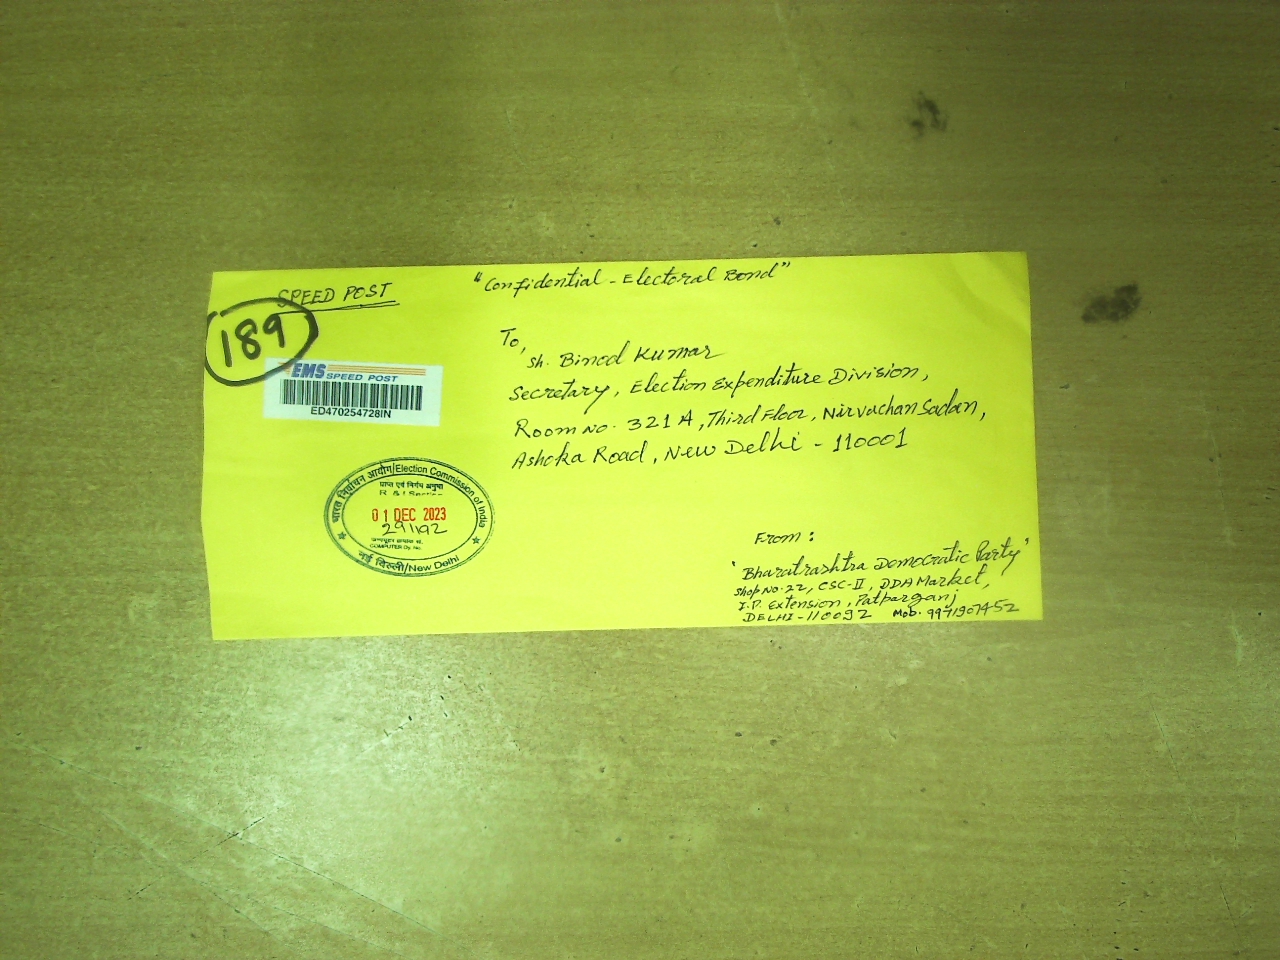 SPEED POST
"Confidential - Electoral Bond"
189
To,
Sh. Binod Kumar
Secretary, Election Expenditure Division,
Room No. 321 A, Third Floor, Nirvachan Sadan,
Ashoka Road, New Delhi - 110001
EMS SPEED POST
ED470254728IN
भारत निर्वाचन आयोग/Election Commission of India
प्राप्त एवं निर्गम अनुभाग
R & I Section
01 DEC 2023
291192
COMPUTER Dy. No.
नई दिल्ली/New Delhi
From:
'Bharatrashtra Democratic Party'
Shop No. 22, CSC-II, DDA Market,
I.P. Extension, Patparganj
DELHI-110092 Mob. 9971907452